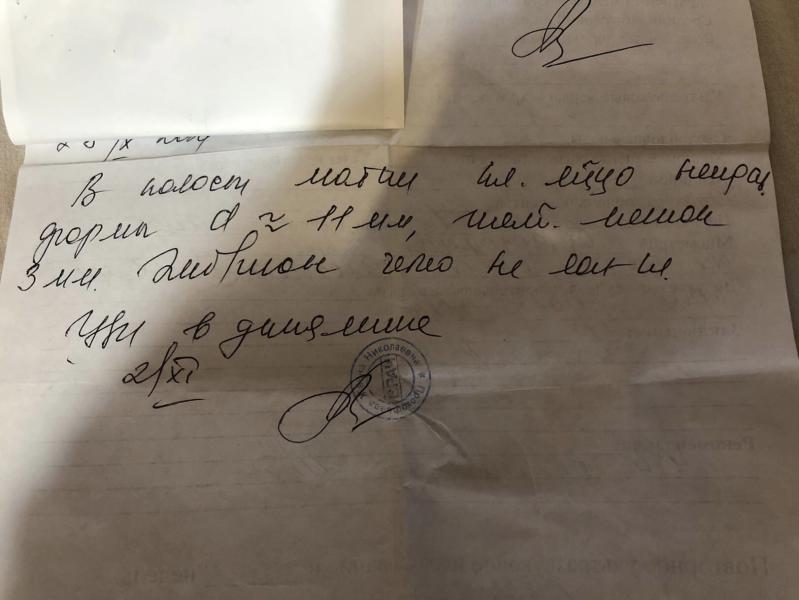 В полости матки пл. яйцо неправ.
формы d ≈ 11 мм, желт. мешок
3 мм. Эмбрион четко не лоц-ся.
УЗИ в динамике
2/XI
Николаевна